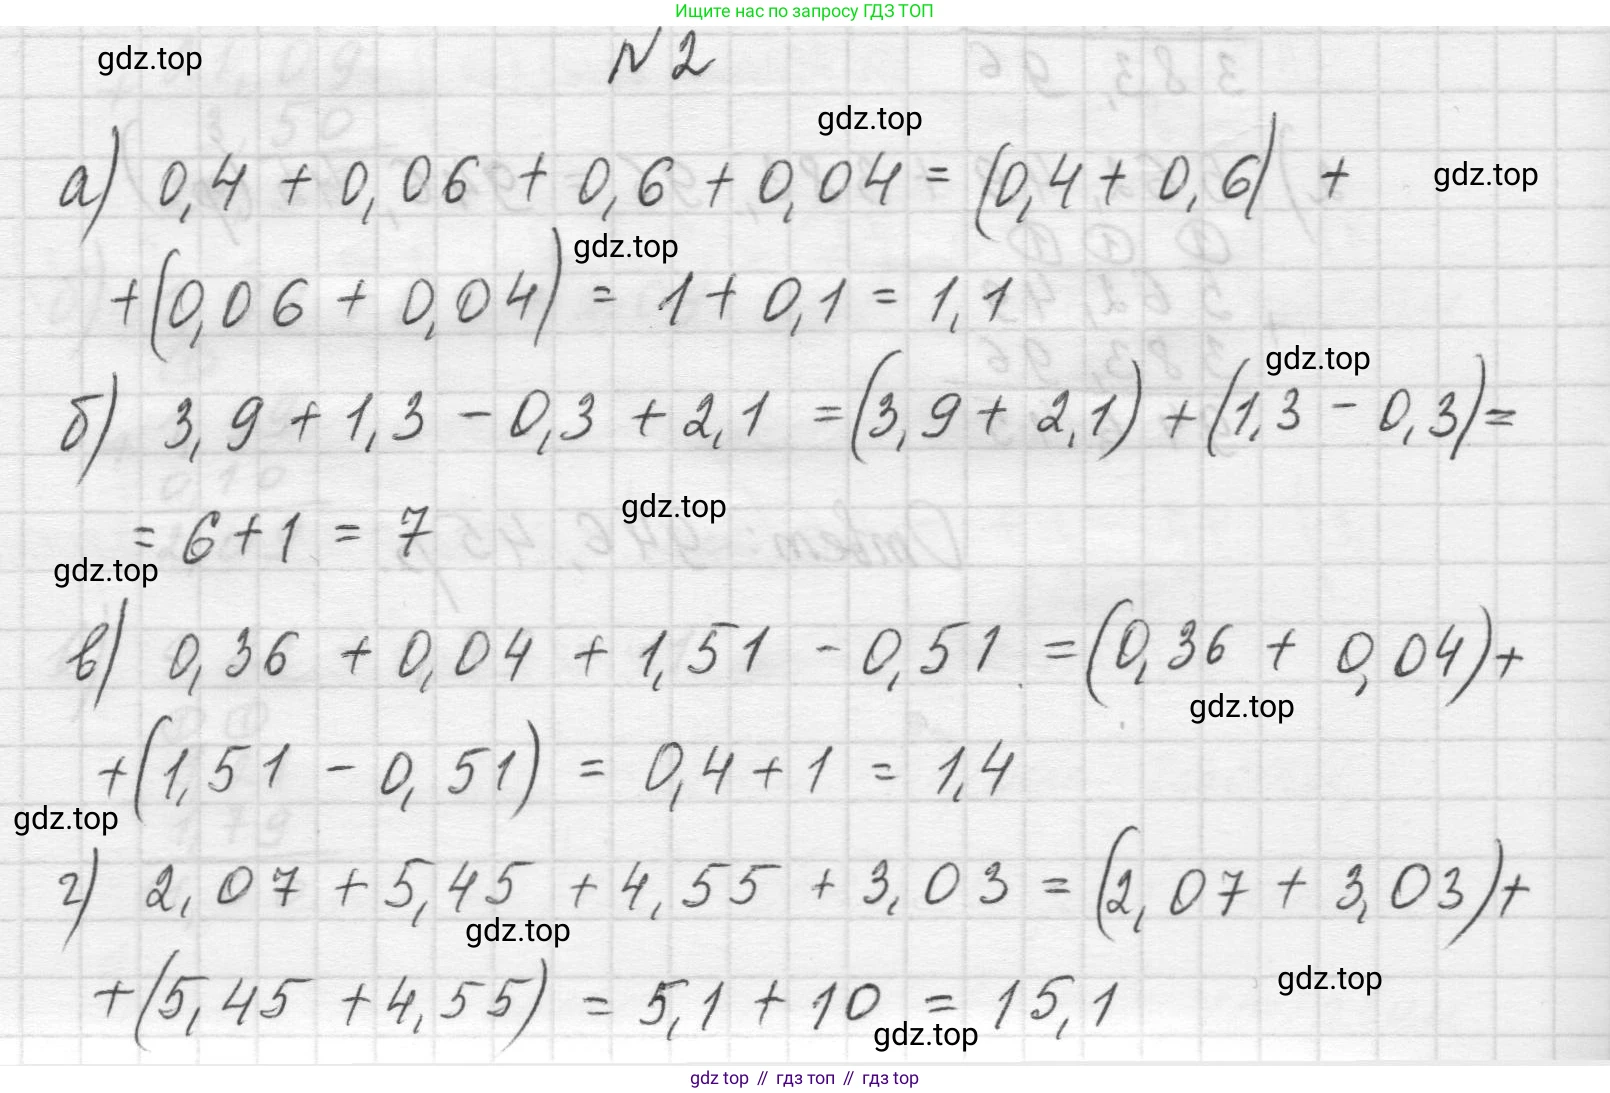 Ищите нас по запросу ГДЗ ТОП
gdz.top
N 2
gdz.top
а) 0,4 + 0,06 + 0,6 + 0,04 = (0,4 + 0,6) +
gdz.top
gdz.top
+ (0,06 + 0,04) = 1 + 0,1 = 1,1
gdz.top
б) 3,9 + 1,3 - 0,3 + 2,1 = (3,9 + 2,1) + (1,3 - 0,3) =
gdz.top
= 6 + 1 = 7
gdz.top
в) 0,36 + 0,04 + 1,51 - 0,51 = (0,36 + 0,04) +
gdz.top
+ (1,51 - 0,51) = 0,4 + 1 = 1,4
gdz.top
г) 2,07 + 5,45 + 4,55 + 3,03 = (2,07 + 3,03) +
gdz.top
gdz.top
+ (5,45 + 4,55) = 5,1 + 10 = 15,1
gdz.top
gdz top // гдз топ // гдз top